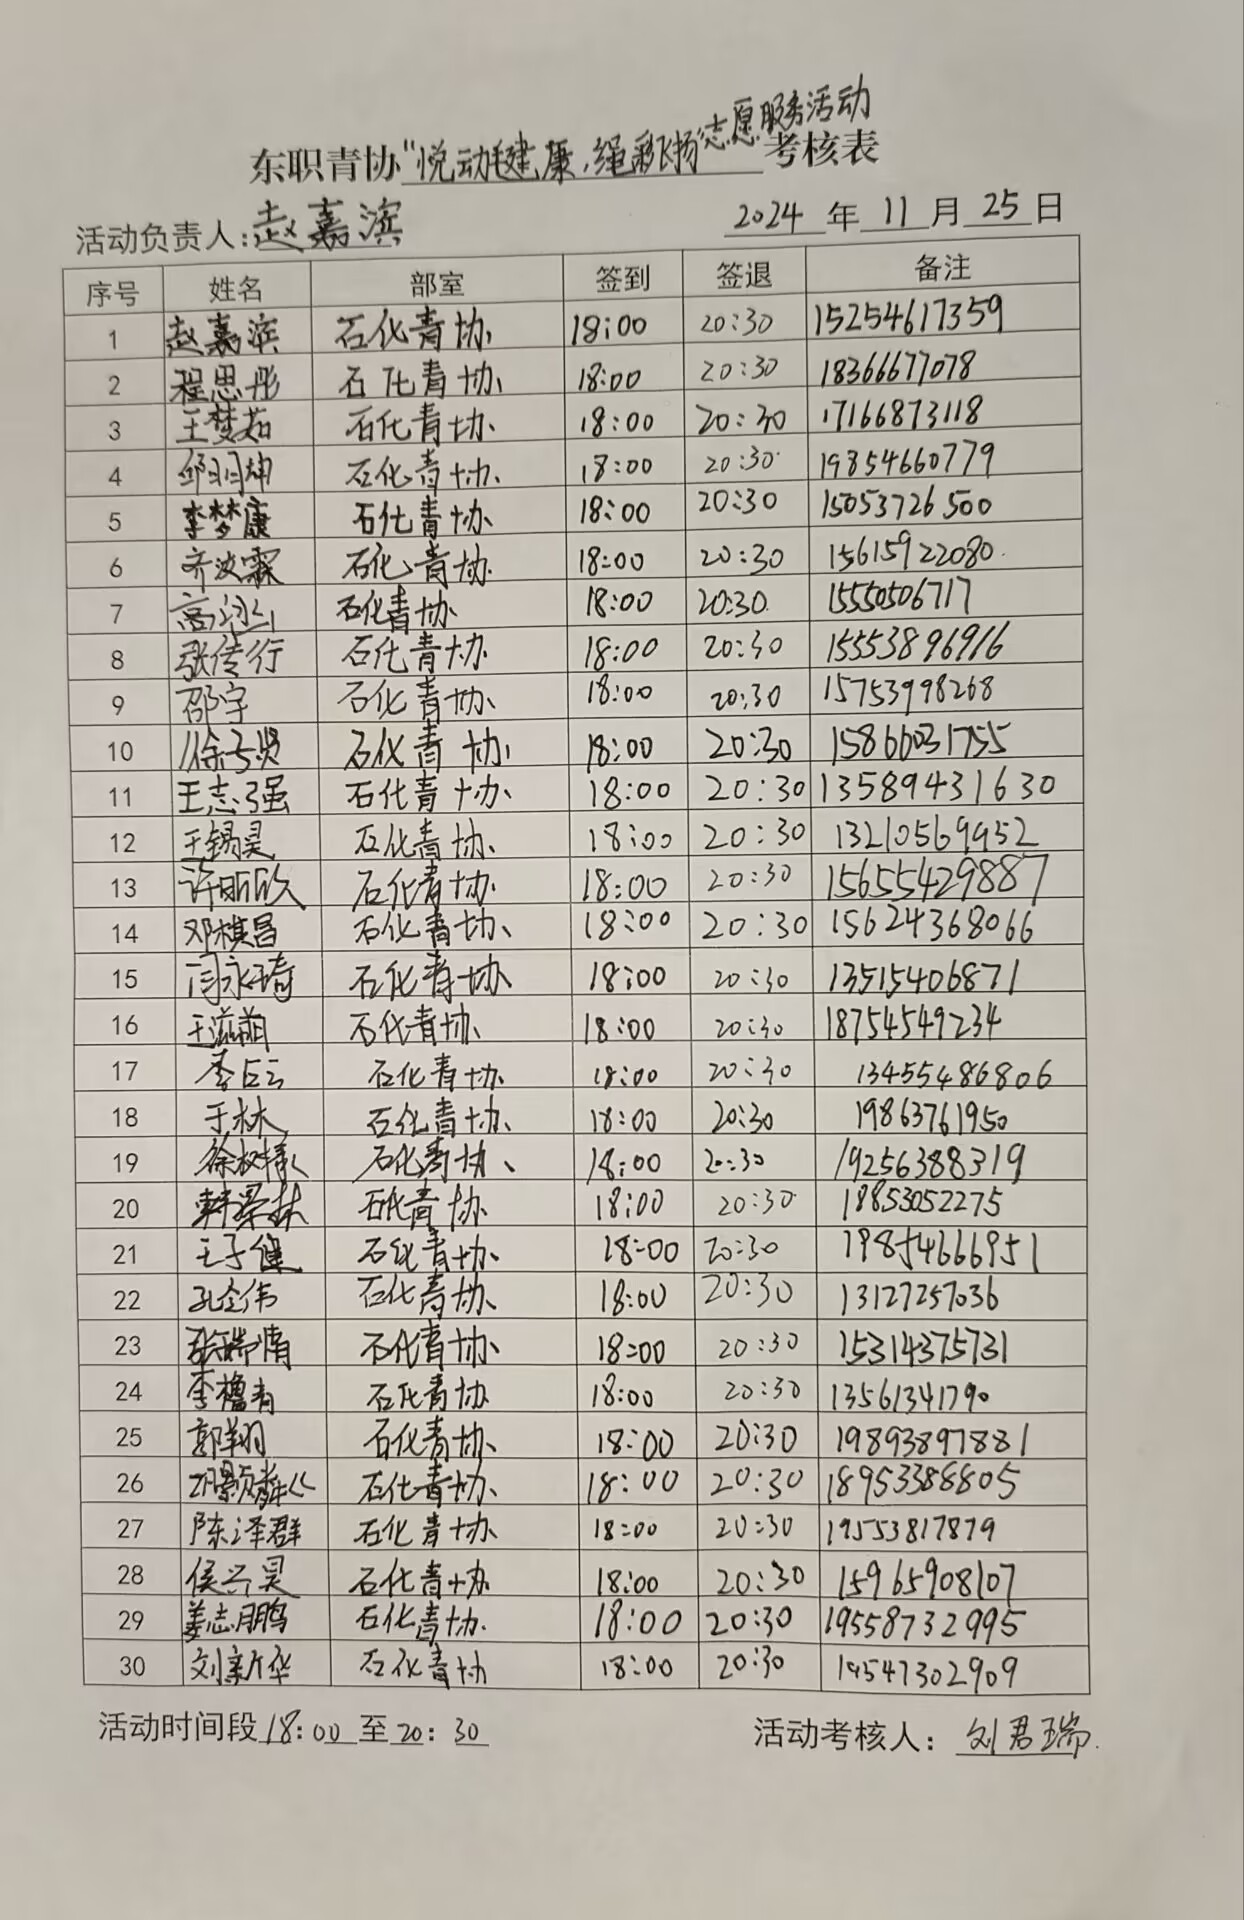 东职青协“悦动健康,绳彩飞扬”志愿服务活动考核表
活动负责人:赵嘉滨 2024年11月25日
序号 姓名 部室 签到 签退 备注
1 赵嘉滨 石化青协 18:00 20:30 15254617359
2 程思彤 石化青协 18:00 20:30 18366677078
3 王梦茹 石化青协 18:00 20:30 17166873118
4 邱羽坤 石化青协 18:00 20:30 19854660779
5 李梦康 石化青协 18:00 20:30 15053726500
6 齐浚霖 石化青协 18:00 20:30 15615922080
7 高 石化青协 18:00 20:30 15550506717
8 张传行 石化青协 18:00 20:30 15553896916
9 邵宇 石化青协 18:00 20:30 15753998268
10 徐子贤 石化青协 18:00 20:30 15866031755
11 王志强 石化青协 18:00 20:30 13589431630
12 王锡昊 石化青协 18:00 20:30 13210569952
13 许昕欣 石化青协 18:00 20:30 15655429887
14 邓棋昌 石化青协 18:00 20:30 15624368066
15 闫永琦 石化青协 18:00 20:30 13515406871
16 王滋萌 石化青协 18:00 20:30 18754549234
17 李巨云 石化青协 18:00 20:30 13455486806
18 于林 石化青协 18:00 20:30 19863761950
19 徐 石化青协 18:00 20:30 19256388319
20 韩梁林 石化青协 18:00 20:30 18853052275
21 王子健 石化青协 18:00 20:30 19854666951
22 孔令伟 石化青协 18:00 20:30 13127257036
23 张瑞倩 石化青协 18:00 20:30 15314375731
24 李 石化青协 18:00 20:30 13561341790
25 郭翔 石化青协 18:00 20:30 19893897881
26 石化青协 18:00 20:30 18953388805
27 陈泽群 石化青协 18:00 20:30 19553817879
28 侯兴昊 石化青协 18:00 20:30 15965908107
29 姜志鹏 石化青协 18:00 20:30 19558732995
30 刘新华 石化青协 18:00 20:30 19547302909
活动时间段18:00至20:30 活动考核人:刘君瑞